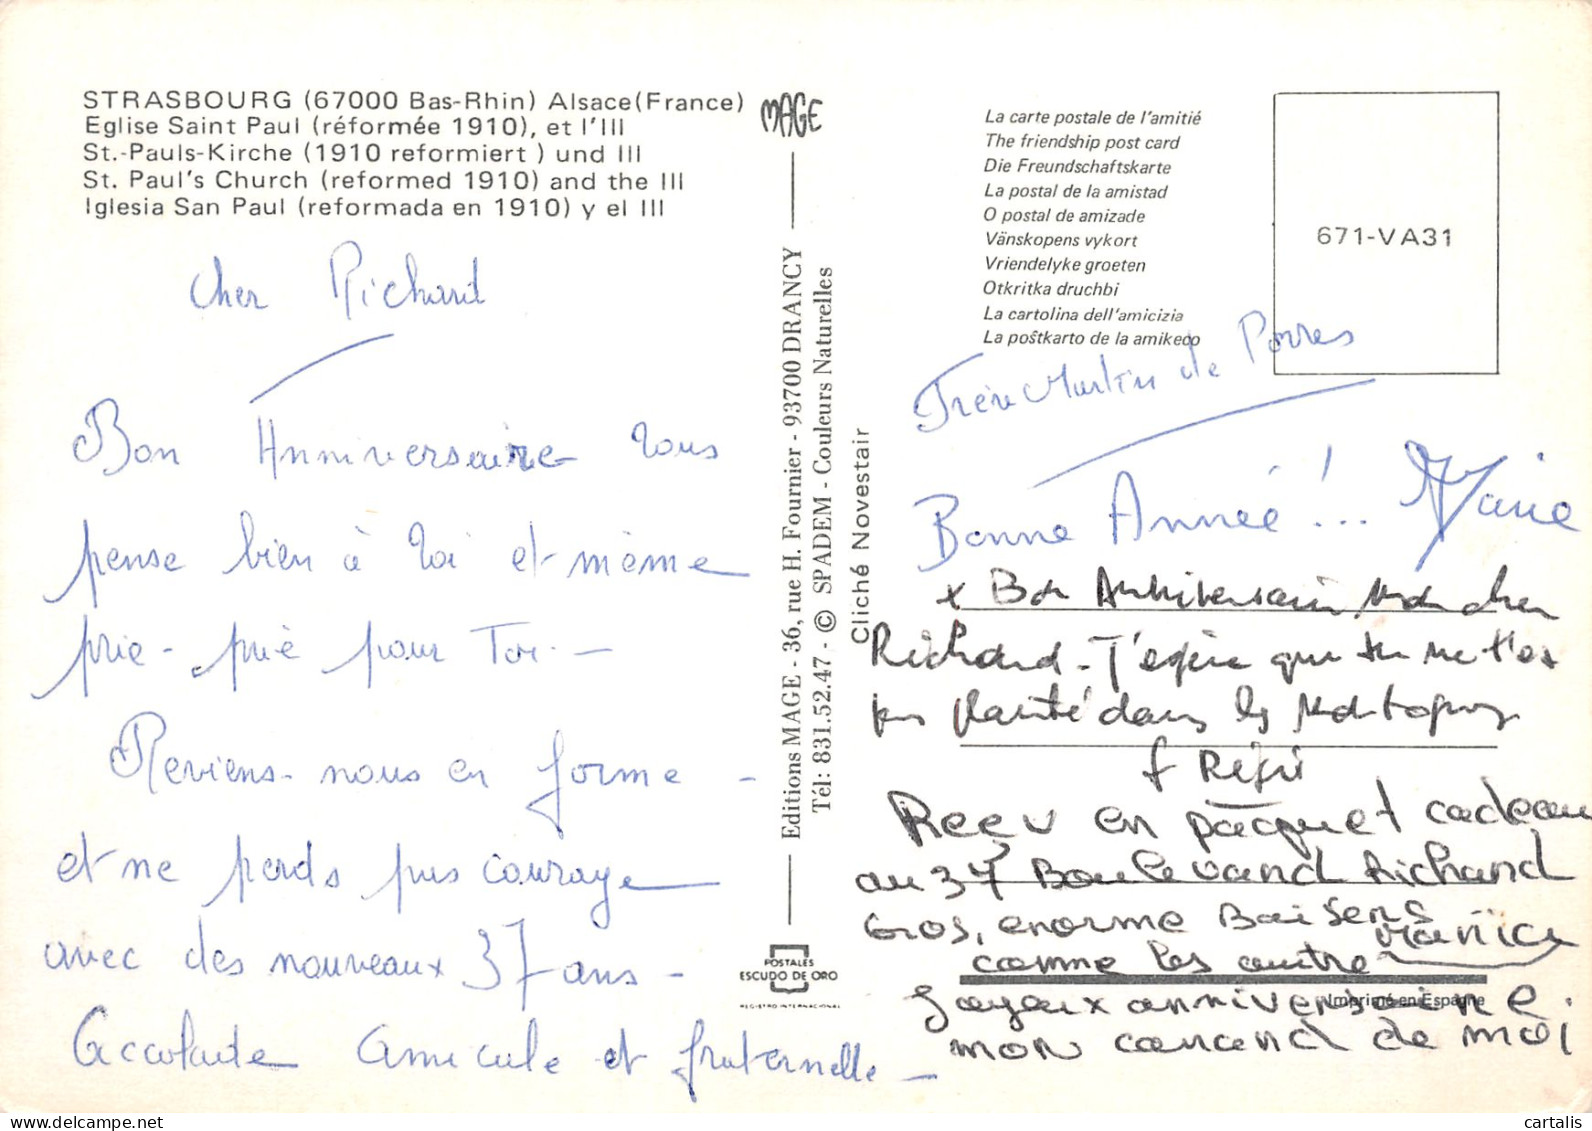 STRASBOURG (67000 Bas-Rhin) Alsace(France)
Eglise Saint Paul (réformée 1910), et l'Ill
St.-Pauls-Kirche (1910 reformiert ) und Ill
St. Paul's Church (reformed 1910) and the Ill
Iglesia San Paul (reformada en 1910) y el Ill
cher Richard
Bon Anniversaire tous
pense bien à toi et même
prie - prié pour Toi. —
Reviens-nous en forme -
et ne perds pas courage
avec des nouveaux 37 ans -
Accolade Amicale et fraternelle -
MAGE
Editions MAGE - 36, rue H. Fournier - 93700 DRANCY
Tél: 831.52.47 - © SPADEM - Couleurs Naturelles
Cliché Novestair
POSTALES
ESCUDO DE ORO
REGISTRO INTERNACIONAL
La carte postale de l'amitié
The friendship post card
Die Freundschaftskarte
La postal de la amistad
O postal de amizade
Vänskopens vykort
Vriendelyke groeten
Otkritka druchbi
La cartolina dell'amicizia
La poŝtkarto de la amikeco
671-VA31
Frère Martin de Porres
Bonne Année ! ... Marie
x Bon Anniversaire Mon cher
Richard - J'espère que tu ne t'es
pas planté dans les
f Régis
Reçu en pacquet cadeau
au 37 Boulevard Richard
Gros, enorme Baisers
comme les autre
Joyeux anniversaire.
mon canard de moi
Imprimé en Espagne